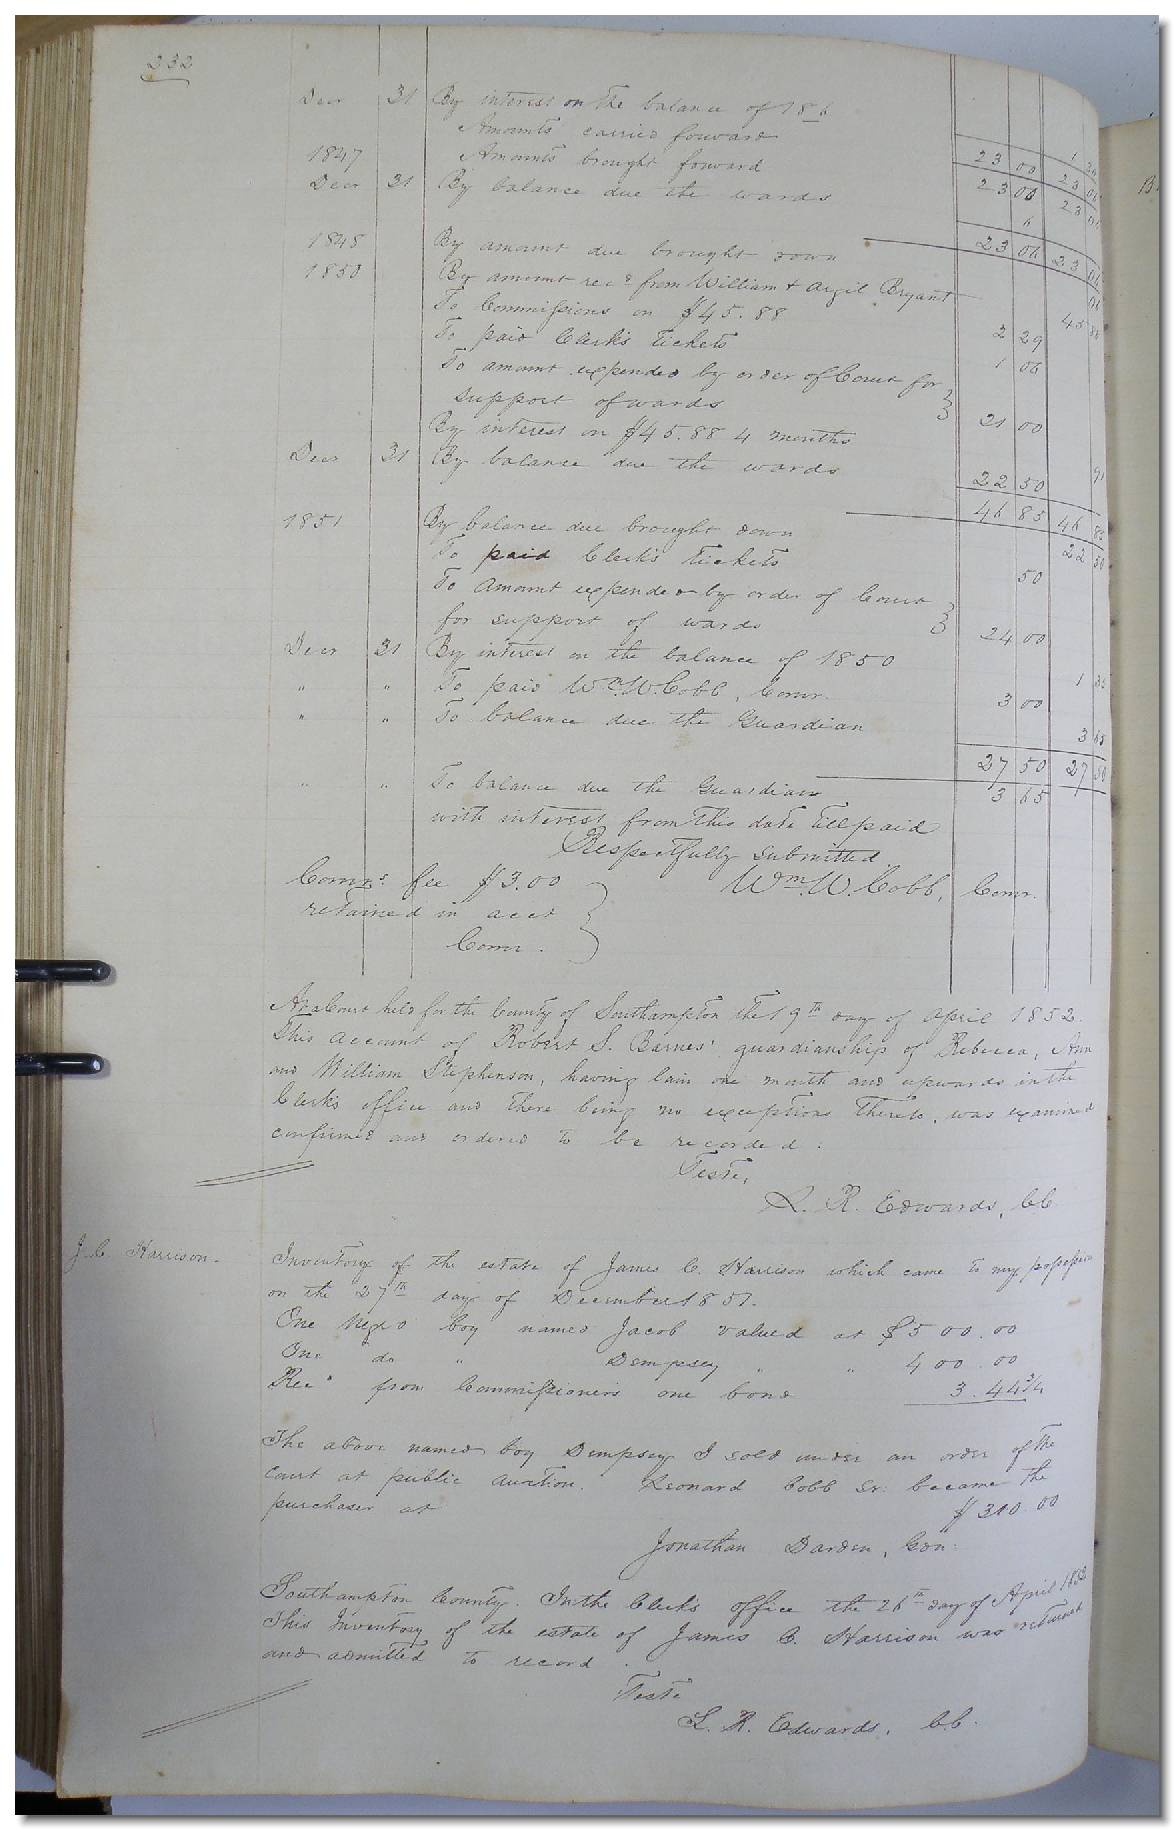 232
Decr 31 By interest on the balance of 1846 1 30
Amounts carried forward 23 00 23 06
1847 Amounts brought forward 23 00 23 06
Decr 31 By balance due the wards 6
23 06 23 06
1848 By amount due brought down 06
1850 By amount recd from William & Argil Bryant 45 88
To Commissions on $45.88 2 29
To paid Clerk's tickets 1 06
To amount expended by order of Court for
support of wards 21 00
By interest on $45.88 4 months 91
Decr 31 By balance due the wards 22 50
46 85 46 85
1851 By balance due brought down 22 50
To paid Clerk's tickets 50
To Amount expended by order of Court
for support of wards 24 00
Decr 31 By interest on the balance of 1850 1 35
" " To paid Wm. W. Cobb, Comr. 3 00
" " To balance due the Guardian 3 65
27 50 27 50
" " To balance due the Guardian 3 65
with interest from this date till paid
Respectfully submitted
Comrs. fee $3.00 Wm. W. Cobb, Comr.
retained in acct
Comr.
At a Court held for the County of Southampton the 19th day of April 1852.
This account of Robert S. Barnes' guardianship of Rebecca, Ann
and William Stephenson, having lain one month and upwards in the
Clerk's office and there being no exceptions thereto, was examined
confirmed and ordered to be recorded.
Teste,
L. R. Edwards, CC.
J. C. Harrison.
Inventory of the estate of James C. Harrison which came to my possession
on the 27th day of December 1851.
One Negro boy named Jacob valued at $500.00
One do " Dempsey " " 400.00
Recd from Commissioners one bond 3.44 3/4
The above named boy Dempsey I sold under an order of the
Court at public auction. Leonard Cobb Sr. became the
purchaser at $310.00
Jonathan Darden, Gdn.
Southampton County. In the Clerk's office the 26th day of April 1852
This Inventory of the estate of James C. Harrison was returned
and admitted to record.
Teste
L. R. Edwards, C.C.